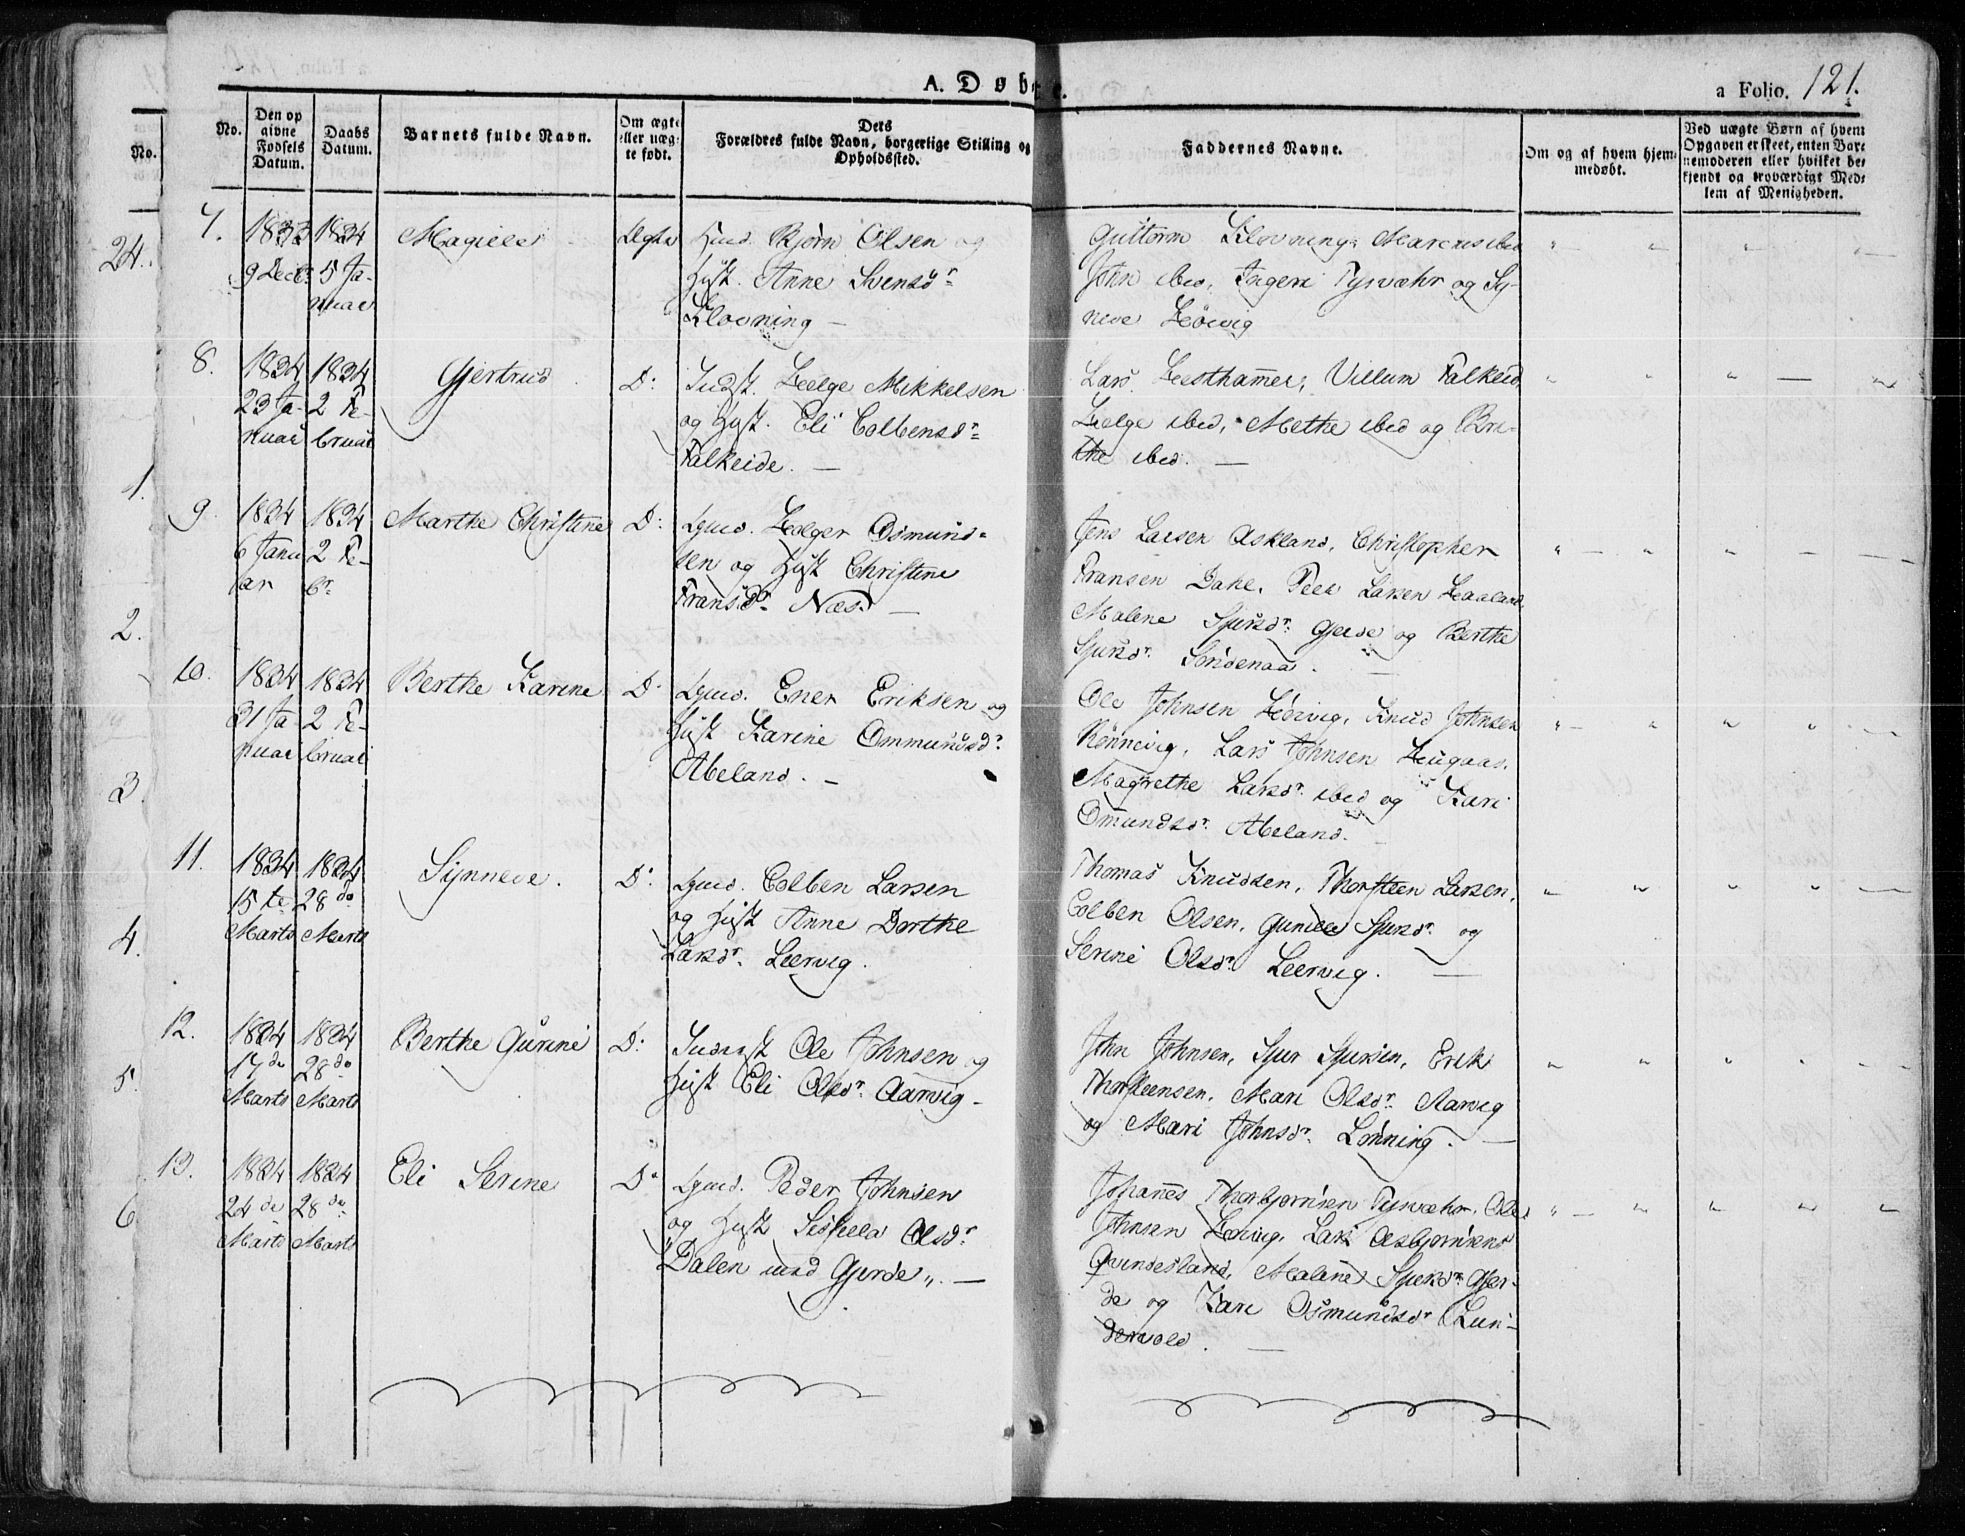 A. Døbte.
a Folio. 121.
No.
No.
Den op
givne
Fødsels
Datum.
Daabs
Datum.
Barnets fulde Navn.
Om ægte
eller uæg-
te født.
Dets
Forældres fulde Navn, borgerlige Stilling og
Opholdssted.
Faddernes Navne.
Om og af hvem hjem-
medøbt.
Ved uægte Børn af hvem
Opgaven er skeet, enten Bar-
nemoderen eller hvilket be-
kjendt og troværdigt Med-
lem af Menigheden.
24.
1.
2.
3.
4.
5.
6
7.
1833
9 Decb:
1834
5 Ja-
nuar
Ægte
Bjørn Olsen og
Hust. Anne Svensdr:
Klovning —
Guttorm Klovning, Marcus ibid
John ibid, Ingeri Tysvæhr og Sy-
neve Høivig
8.
1834
23 Ja-
nuar
1834
2 Fe-
bruar
Gjertrud
D:
Indst. Helge Mikkelsen
og Hust. Eli Colbensdr:
Falkeide. —
Lars Hesthammer, Villum Falkeid
Helge ibid, Methe ibid og Bri-
the ibid. —
9.
1834
6 Janu
ar
1834
2 Fe-
br.
Marthe Christine
D:
Lgmd. Holger Osmund-
sen og Hust Christine
Fransdr. Næs. —
Jens Larsen Askland, Christopher
Fransen Dahe, Peer Larsen Haaland,
Malene Sjursdr: Gjerde og Berthe
Sjursdr. Søndenaa.
10.
1834
31 Ja
nuar
1834
2 Fe-
bruar
Berthe Karine
D:
Lgmd. Ener Eriksen og
Hust Karine Ommundsdr:
Abeland. —
Ole Johnsen Høivig, Knud Johnsen
Rønnevig, Lars Johnsen Haugaas.
Magrethe Larsdr: ibid og Kari
Omundsdr: Abeland.
11.
1834
15 te
Marts
1834
28 do
Marts
Synneve.
D:
Lgmd. Colben Larsen
og Hust Anne Dorthe
Larsdr. Leervig.
Thomas Knudsen, Thorsteen Larsen,
Colben Olsen, Gunille Sjursdr: og
Serine Olsdr: Leervig. —
12.
1834
17 de
Marts
1834
28 do
Marts
Berthe Gurine
D:
Inderst Ole Johnsen og
Hust Eli Olsdr: Aarvig —
John Johnsen, Sjur Sjursen, Erik
Thorsteensen, Mari Olsdr: Aarvig
og Mari Johnsdr. Lønning. —
13.
1834
24 de
Marts
1834
28 de
Marts
Eli Serine
D:
Lgmd. Peder Johnsen
og Hust Sissela Olsdr:
"Dalen und Gjerde". —
Johannes Thorbjørnsen Tysvæhr, Ole
Johnsen Høivig, Lars Asbjørnsen
Qvindesland, Malene Sjursdr: Gjer-
de og Kari Osmundsdr Lun-
dervold. —